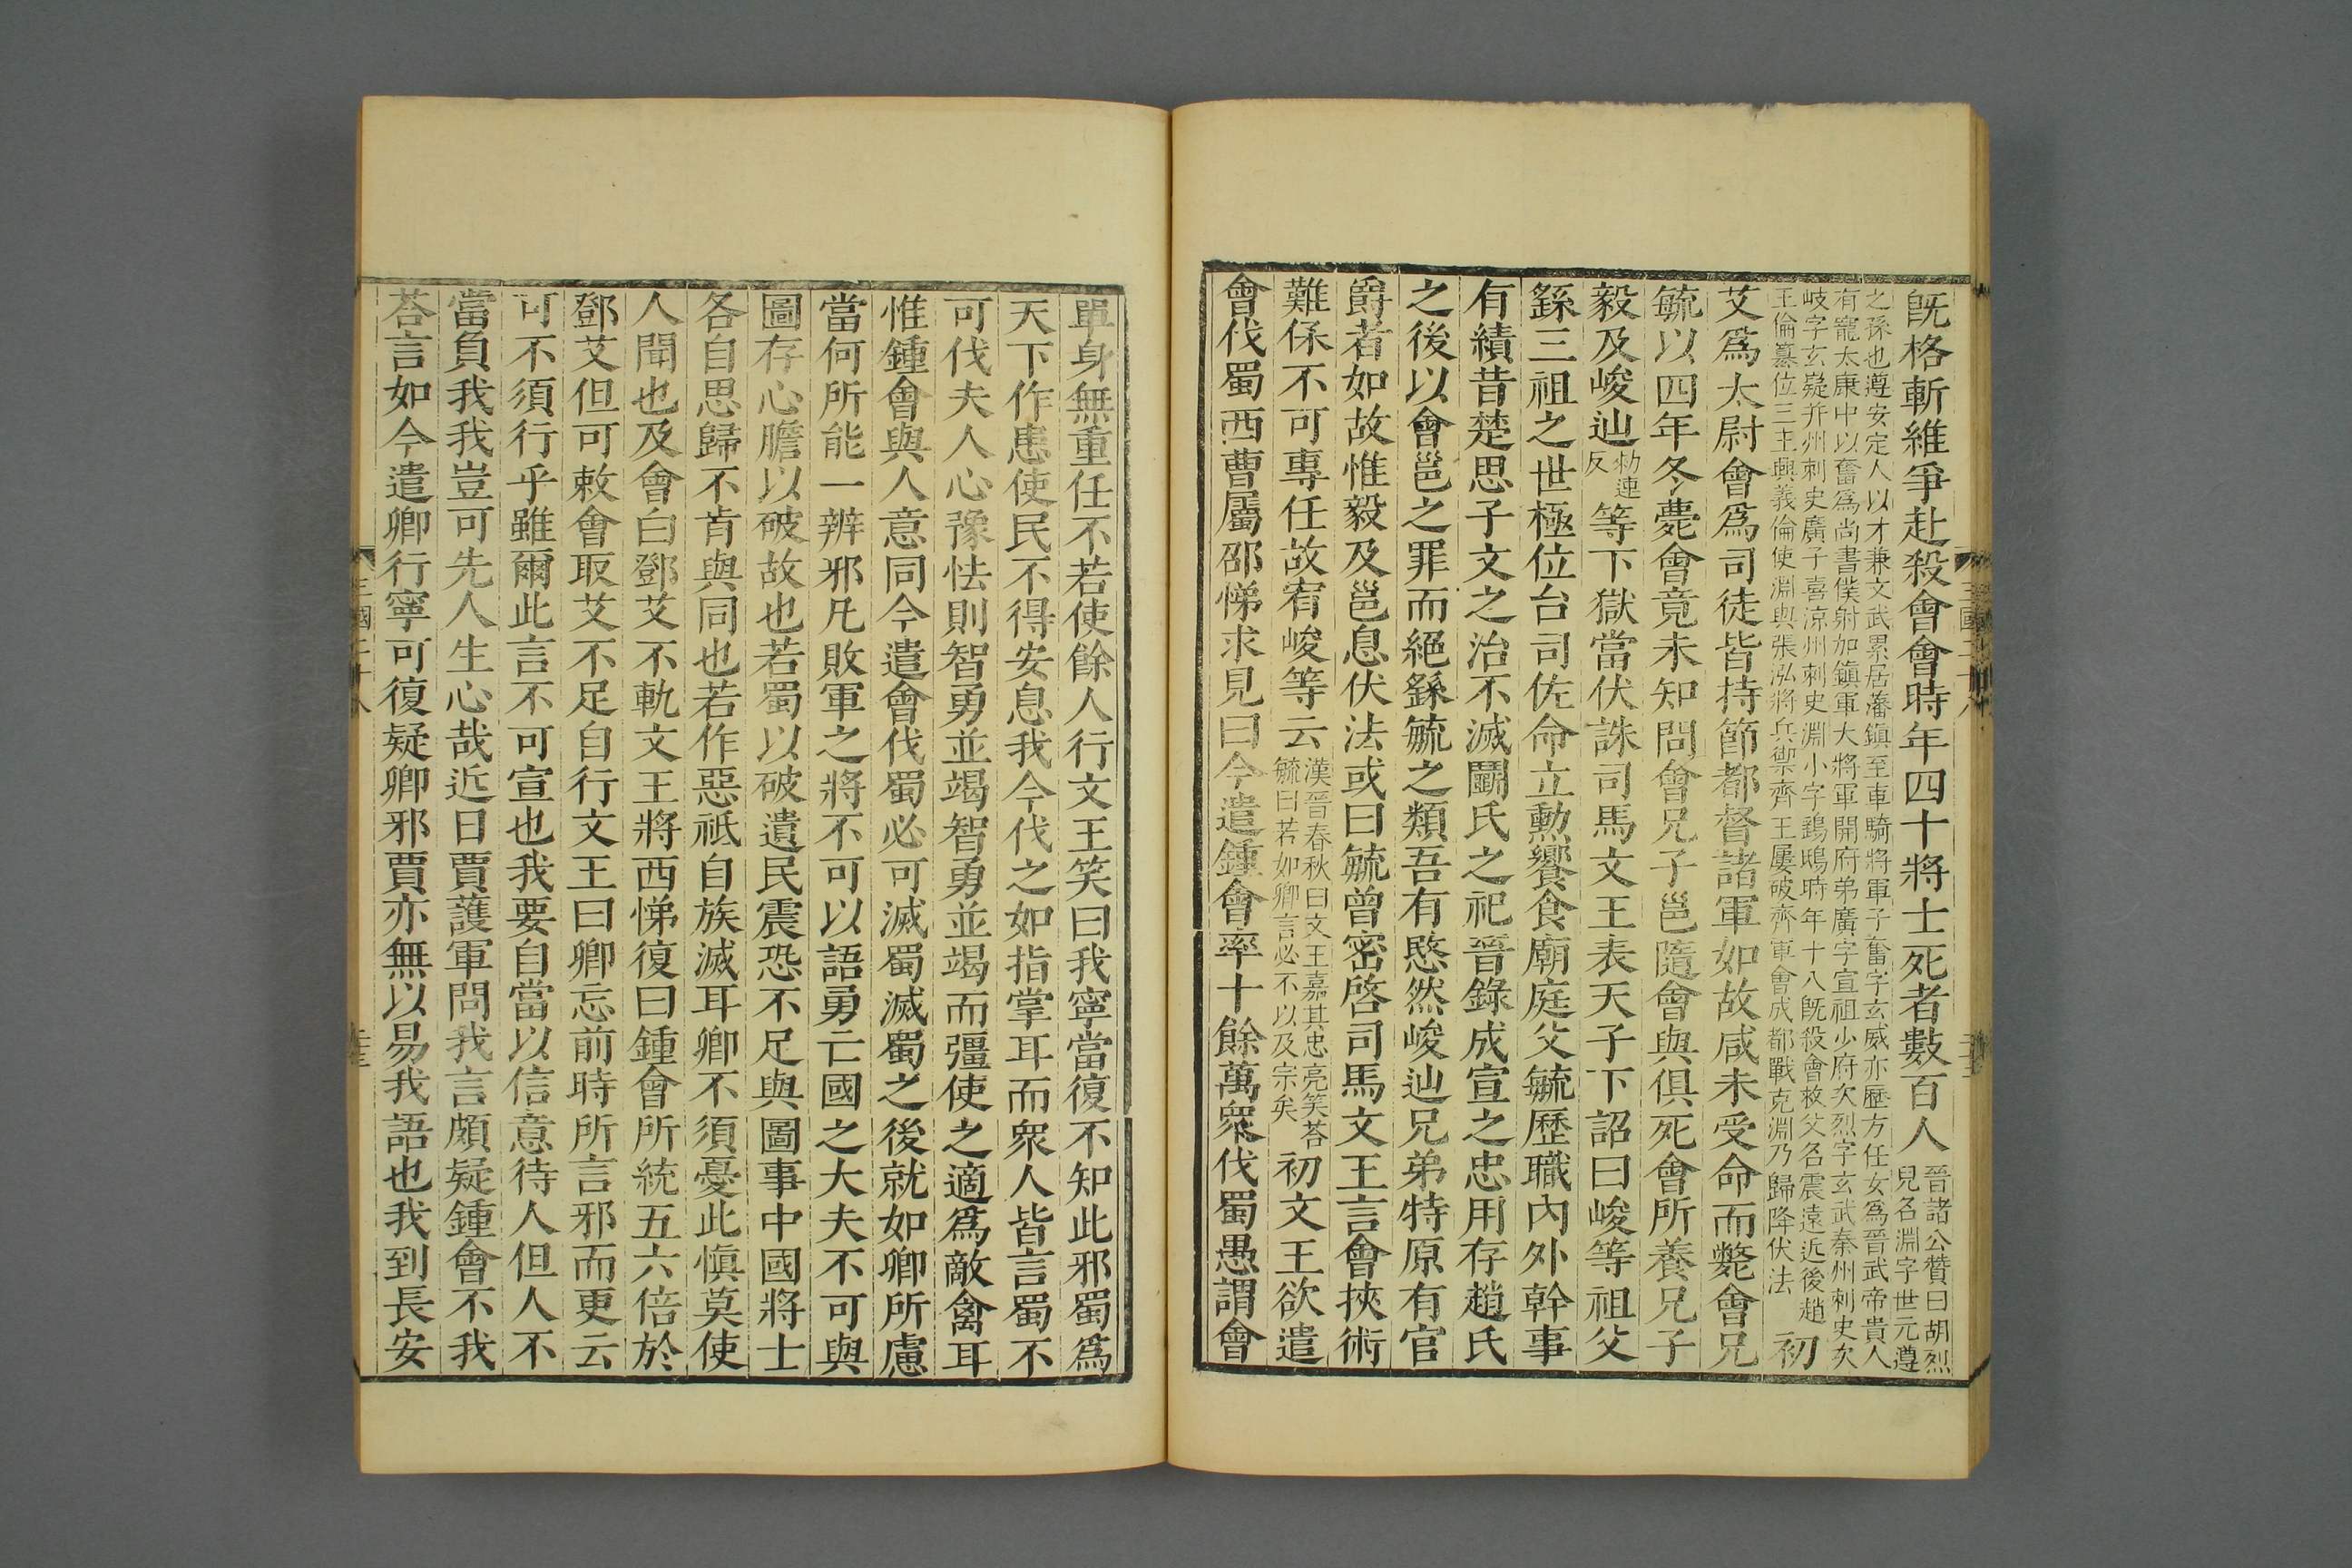 旣格斬維爭赴殺會會時年四十將士死者數百人晉諸公贊曰胡烈
兒名淵字世元遵
之孫也遵安定人以才兼文武累居藩鎮至車騎將軍子奮字玄威亦歷方任女爲晉武帝貴人
有寵太康中以奮爲尚書僕射加鎮軍大將軍開府弟廣字宣祖少府次烈字玄武秦州刺史次
岐字玄嶷并州刺史廣子喜涼州刺史淵小字鷂鴟時年十八旣殺會救父名震遠近後趙
王倫簒位三王興義倫使淵與張泓將兵禦齊王屢破齊軍會成都戰克淵乃歸降伏法初
艾爲太尉會爲司徒皆持節都督諸軍如故咸未受命而斃會兄
毓以四年冬薨會竟未知問會兄子邕隨會與俱死會所養兄子
毅及峻辿勑連
反等下獄當伏誅司馬文王表天子下詔曰峻等祖父
繇三祖之世極位台司佐命立勳饗食廟庭父毓歷職內外幹事
有績昔楚思子文之治不滅鬭氏之祀晉錄成宣之忠用存趙氏
之後以會邕之罪而絕繇毓之類吾有愍然峻辿兄弟特原有官
爵者如故惟毅及邕息伏法或曰毓曾密啓司馬文王言會挾術
難保不可專任故宥峻等云漢晉春秋曰文王嘉其忠亮笑荅
毓曰若如卿言必不以及宗矣初文王欲遣
會伐蜀西曹屬邵悌求見曰今遣鍾會率十餘萬衆伐蜀愚謂會
單身無重任不若使餘人行文王笑曰我寧當復不知此邪蜀爲
天下作患使民不得安息我今伐之如指掌耳而衆人皆言蜀不
可伐夫人心豫怯則智勇並竭智勇並竭而彊使之適爲敵禽耳
惟鍾會與人意同今遣會伐蜀必可滅蜀滅蜀之後就如卿所慮
當何所能一辨邪凡敗軍之將不可以語勇亡國之大夫不可與
圖存心膽以破故也若蜀以破遺民震恐不足與圖事中國將士
各自思歸不肯與同也若作惡祗自族滅耳卿不須憂此愼莫使
人聞也及會白鄧艾不軌文王將西悌復曰鍾會所統五六倍於
鄧艾但可敕會取艾不足自行文王曰卿忘前時所言邪而更云
可不須行乎雖爾此言不可宣也我要自當以信意待人但人不
當負我我豈可先人生心哉近日賈護軍問我言頗疑鍾會不我
荅言如今遣卿行寧可復疑卿邪賈亦無以易我語也我到長安
三國二十八